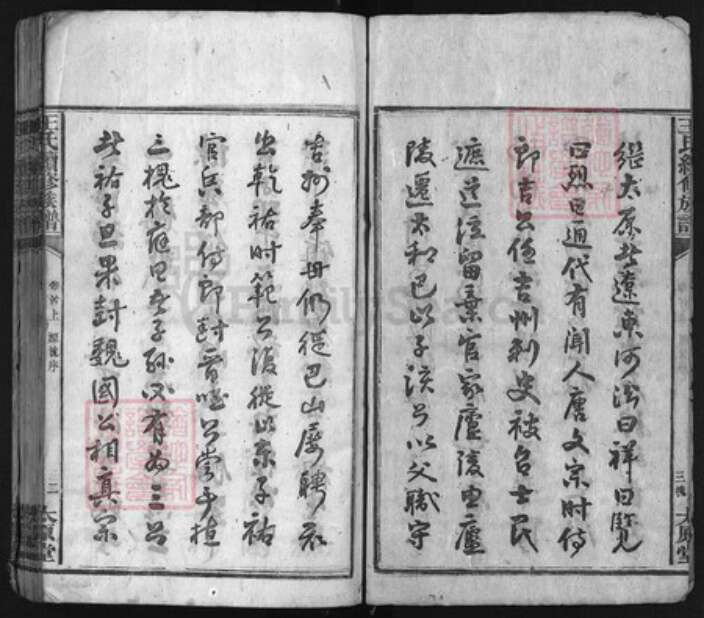 繼太原者遼東河汾曰祥曰覽
曰烈曰通代有聞人唐文宗時侍
郎吉公任吉州刺史被召士民
遮道泣留棄官家廬陵由廬
陵遷太和巴以子該公以父職守
吉州奉母仍從巴山屢聘不
出乾祐時範公復從以京子祐
官兵部侍郎封晉國公嘗手植
三槐於庭曰吾子孫必有為三公
者祐子旦果封魏國公相真宗
王氏續修族譜
卷首上 源流序
二 太原堂
王氏續修族譜
三槐 太原堂
FamilySearch